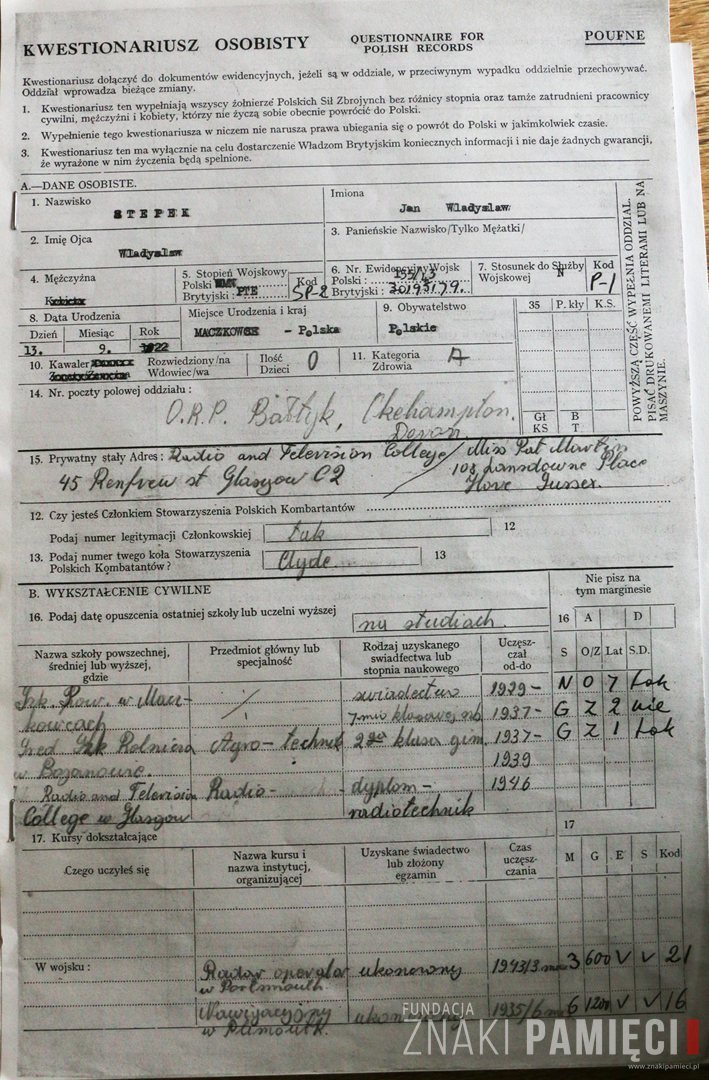 KWESTIONARIUSZ OSOBISTY
QUESTIONNAIRE FOR
POLISH RECORDS
POUFNE
Kwestionariusz dołączyć do dokumentów ewidencyjnych, jeżeli są w oddziale, w przeciwnym wypadku oddzielnie przechowywać.
Oddział wprowadza bieżące zmiany.
1. Kwestionariusz ten wypełniają wszyscy żołnierze Polskich Sił Zbrojnych bez różnicy stopnia oraz tamże zatrudnieni pracownicy
cywilni, mężczyźni i kobiety, którzy nie życzą sobie obecnie powrócić do Polski.
2. Wypełnienie tego kwestionariusza w niczem nie narusza prawa ubiegania się o powrót do Polski w jakimkolwiek czasie.
3. Kwestionariusz ten ma wyłącznie na celu dostarczenie Władzom Brytyjskim koniecznych informacji i nie daje żadnych gwarancji,
że wyrażone w nim życzenia będą spełnione.
A.—DANE OSOBISTE.
1. Nazwisko
STEPEK
Imiona
Jan Wladyslaw
2. Imię Ojca
Wladyslaw
3. Panieńskie Nazwisko/Tylko Mężatki/
4. Mężczyzna
5. Stopień Wojskowy
Polski
Brytyjski : PTE
Kod
SP-2
6. Nr. Ewidencyjny Wojsk
Polski : 155/43
Brytyjski : 30193179.
7. Stosunek do Służby
Wojskowej
N
Kod
P-1
8. Data Urodzenia
Dzień Miesiąc Rok
13. 9. 1922
Miejsce Urodzenia i kraj
MACZKOWCE - Polska
9. Obywatelstwo
Polskie
35 P. kły K.S.
Gł B
KS T
10. Kawaler
Rozwiedziony/na
Wdowiec/wa
Ilość
Dzieci 0
11. Kategoria
Zdrowia A
14. Nr. poczty polowej oddziału :
O.R.P. Bałtyk, Okehampton.
Devon
POWYŻSZĄ CZĘŚĆ WYPEŁNIA ODDZIAŁ.
PISAĆ DRUKOWANEMI LITERAMI LUB NA
MASZYNIE.
15. Prywatny stały Adres : Radio and Television College / Miss Pat Martyn
45 Renfrew st Glasgow C2
108 Lansdowne Place
Hove Sussex.
12. Czy jesteś Członkiem Stowarzyszenia Polskich Kombartantów
Podaj numer legitymacji Członkowskiej tak 12
13. Podaj numer twego koła Stowarzyszenia
Polskich Kombatantów? Clyde. 13
B. WYKSZTAŁCENIE CYWILNE
Nie pisz na
tym marginesie
16. Podaj datę opuszcenia ostatniej szkoły lub uczelni wyższej
na studiach.
16 A D
Nazwa szkoły powszechnej,
średniej lub wyższej,
gdzie
Przedmiot główny lub
specjalność
Rodzaj uzyskanego
swiadfectwa lub
stopnia naukowego
Uczęsz-
czał
od-do
S O/Z Lat S.D.
Szk. Pow. w Macz-
kowcach
świadectwo
7 mio klasowej szk
1929-
1937-
N O 7 tak
G Z 2 nie
Śred Szk Rolnicza
w Bojanowie.
Agro-technik
2ga klasa gim.
1937-
1939
G Z 1 tak
Radio and Television
College w Glasgow
Radio-
dyplom-
radiotechnik
1946
17. Kursy dokształcające
17
Czego uczyłeś się
Nazwa kursu i
nazwa instytucj,
organizującej
Uzyskane świadectwo
lub złożony
egzamin
Czas
uczęsz-
czania
M G E S Kod
W wojsku :
Radar operator
w Portsmouth
ukończony
1943/3 mc
3 600 V V 21
Nawigacyjny
w Plimouth.
1935/6 mc
6 1200 V V 16
FUNDACJA
ZNAKI PAMIĘCI
www.znakipamieci.pl